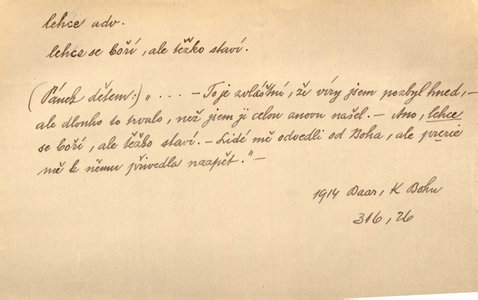 lehce adv.
lehce se boří, ale těžko staví.
(Pánek dětem:) „ . . . . – To je zvláštní, že víry jsem pozbyl hned, –
ale dlouho to trvalo, než jsem ji celou znovu našel. – Ano, lehce
se boří, ale těžko staví. – Lidé mě odvedli od Boha, ale
mě k němu přivedla nazpět." –
1914 Baar, K Bohu
316, 26